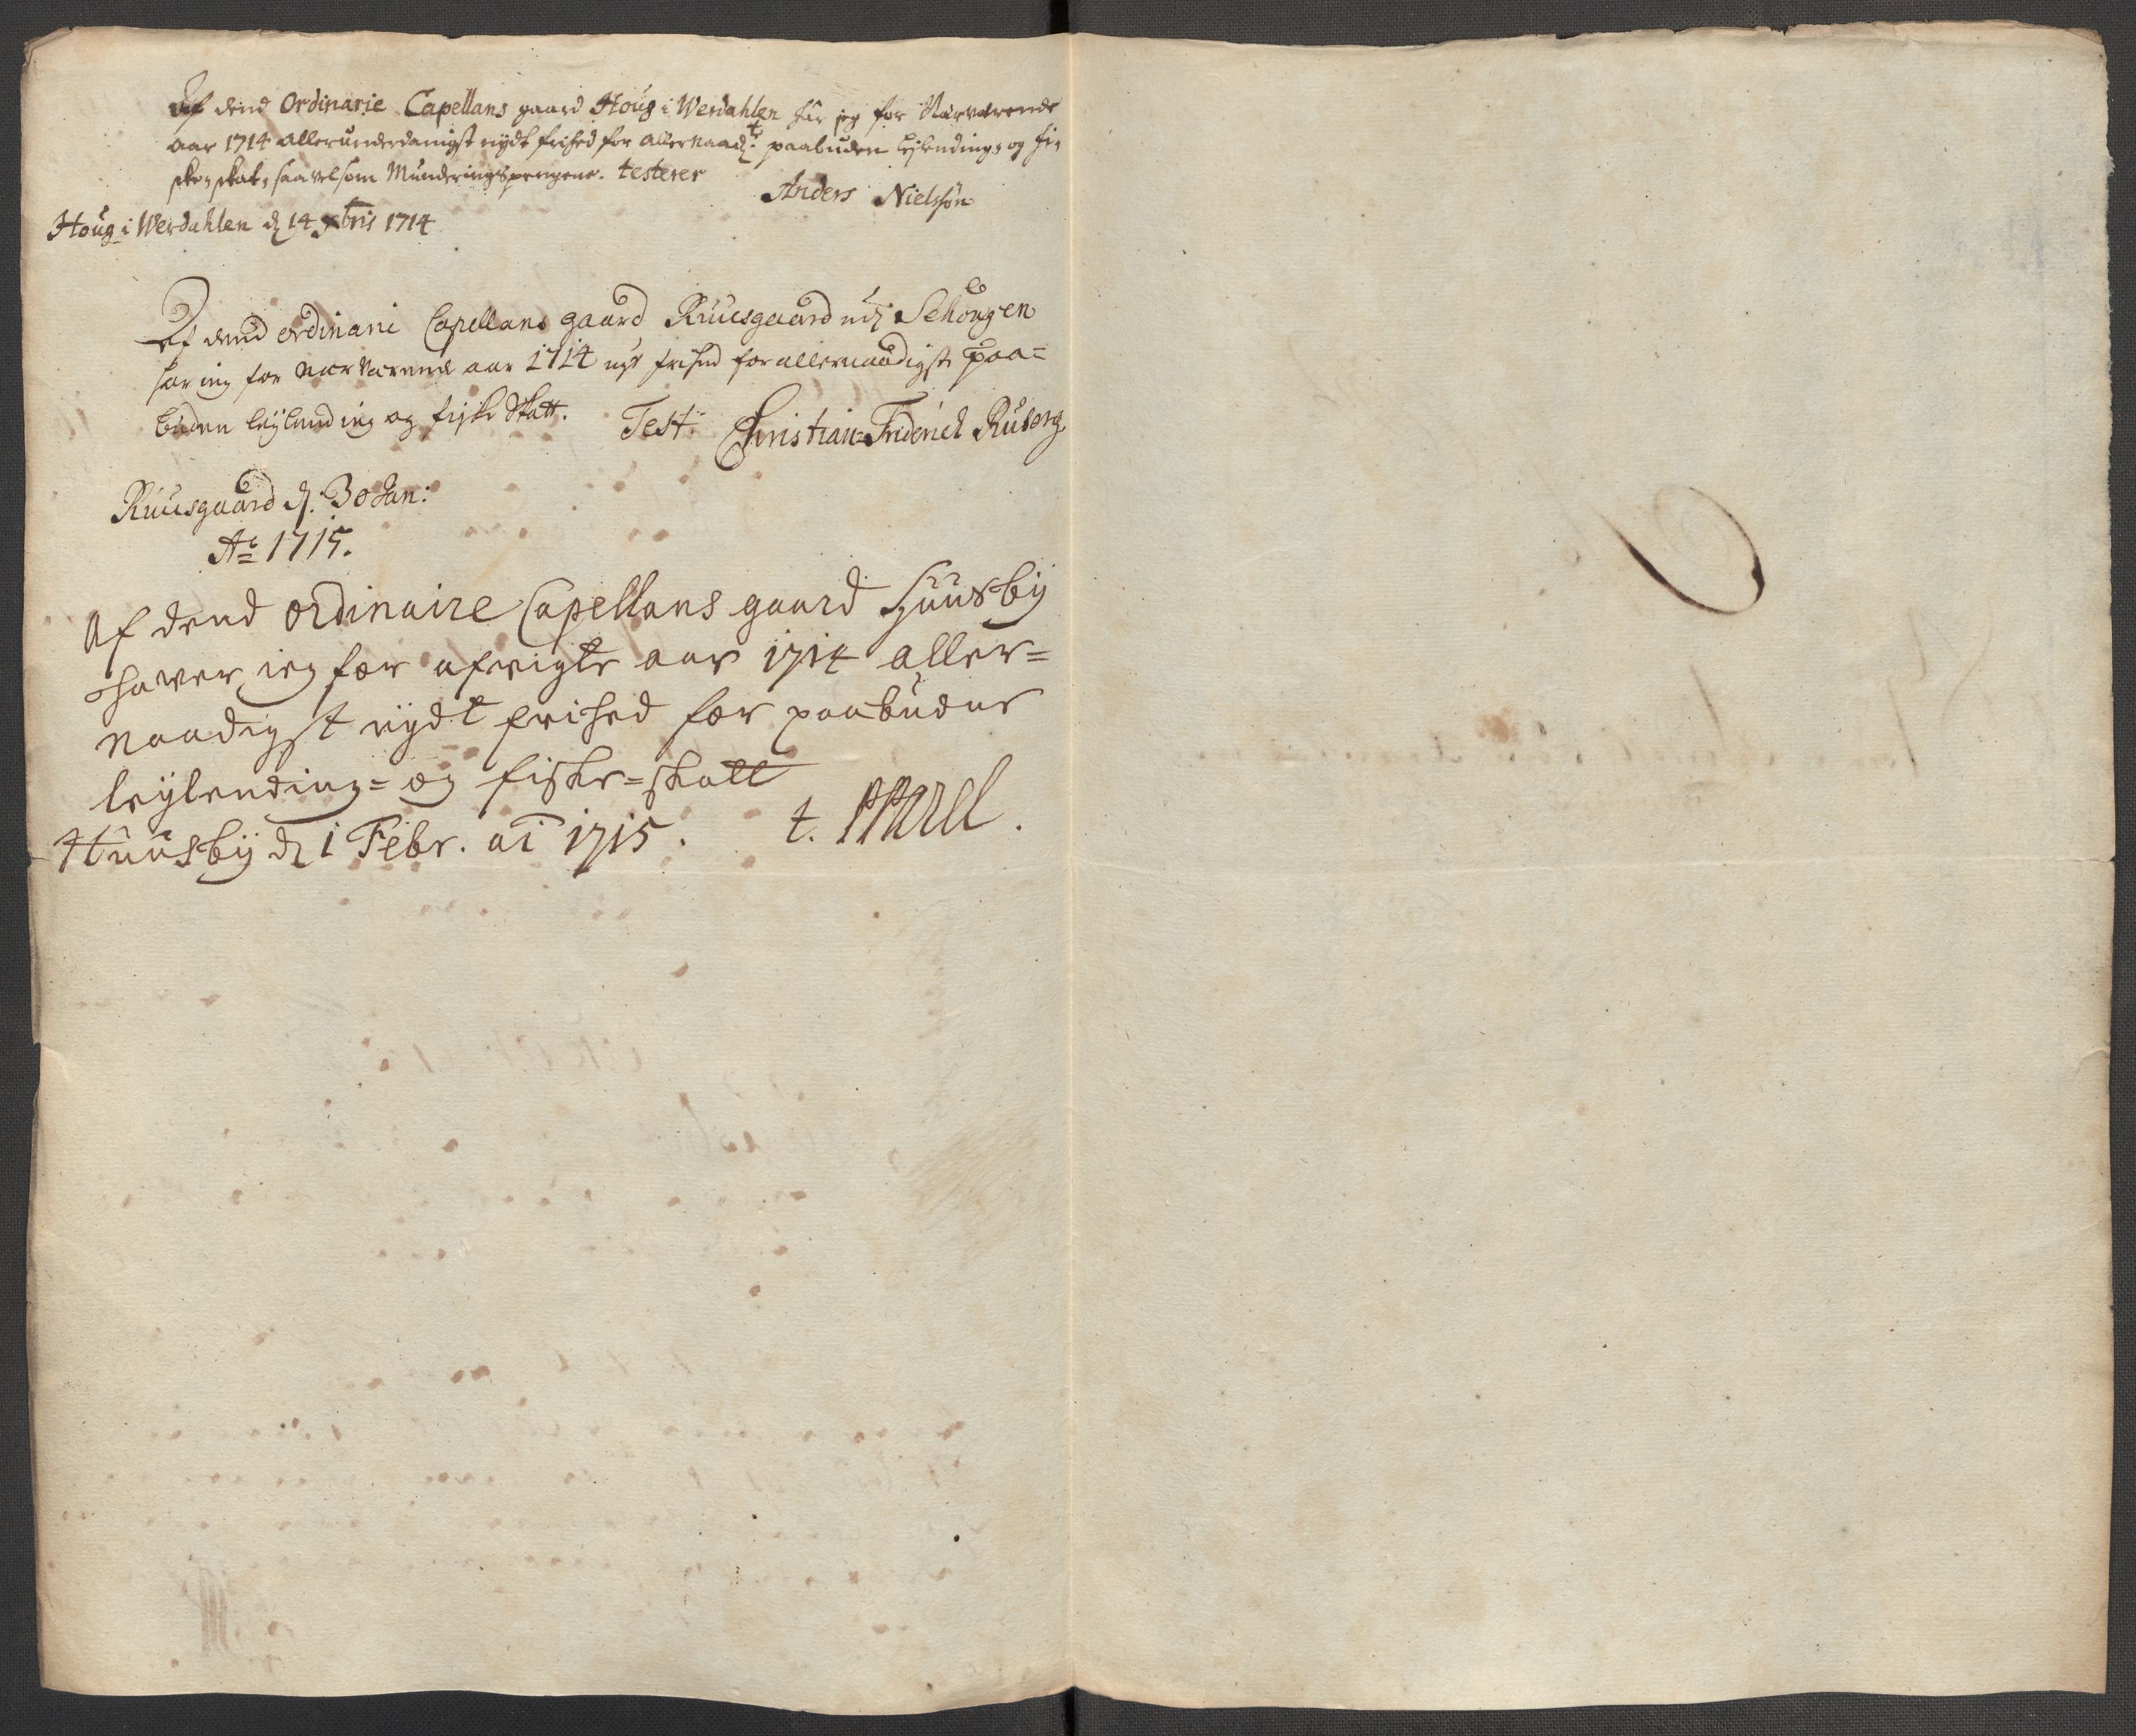 Af dend Ordinarie Capellans gaard Houg i Werdahlen har jeg for Nærværende
aar 1714 allerunderdanigst nydt frihed for allernaad:te paabuden Leylendings og fi,
ske, skat, saavelsom Munderingspengene. testerer
Anders Nielssøn
Houg i Werdahlen d 14 xbris 1714
Af dend ordinarie Capellans gaard Ruusgaard udj Schougen
har ieg for nærværende aar 1714 nyt frihed for allernaadigste paa=
buden leylending og fiske Skatt. Test: Christian=Friderich Ruberg
Ruusgaard d. 30 Jan:
Ao 1715.
Af dend ordinaire Capellans gaard Huusby
haver ieg for afvigte aar 1714 aller=
naadigst nydt frihed for paabudne
leylending= og fiske=skatt
Huusby d 1 Febr. ai 1715. t.